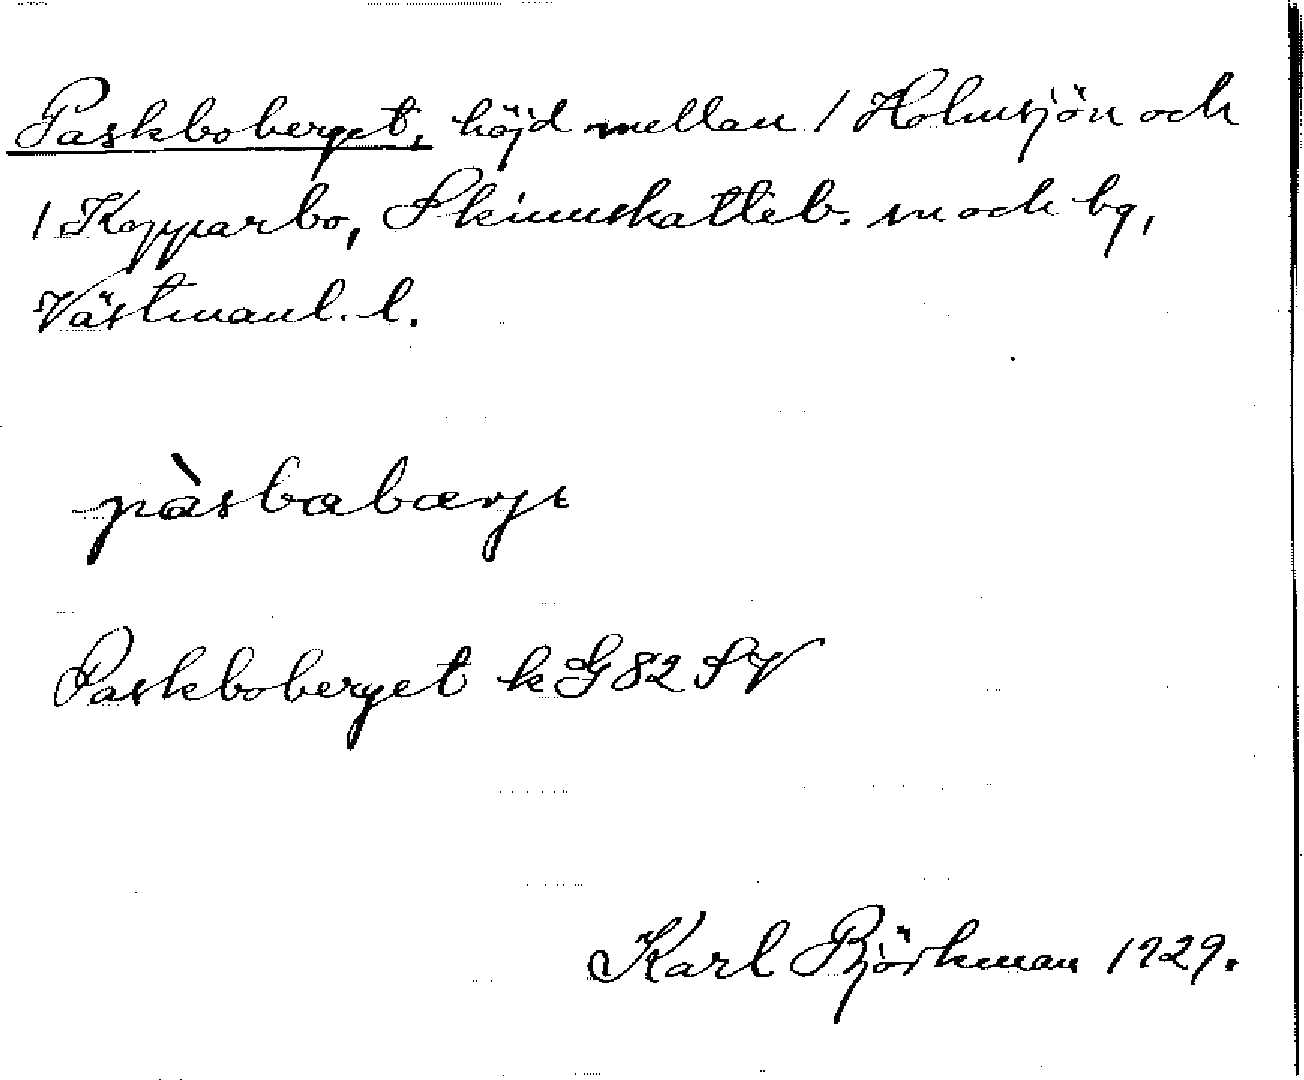 Paskboberget, höjd mellan / Holmsjön och
/ Kopparbo, Skinnskatteb. sn och bg,
Västmanl. l.
pàsbabærjt
Paskboberget k G 82 SV
Karl Björkman 1929.